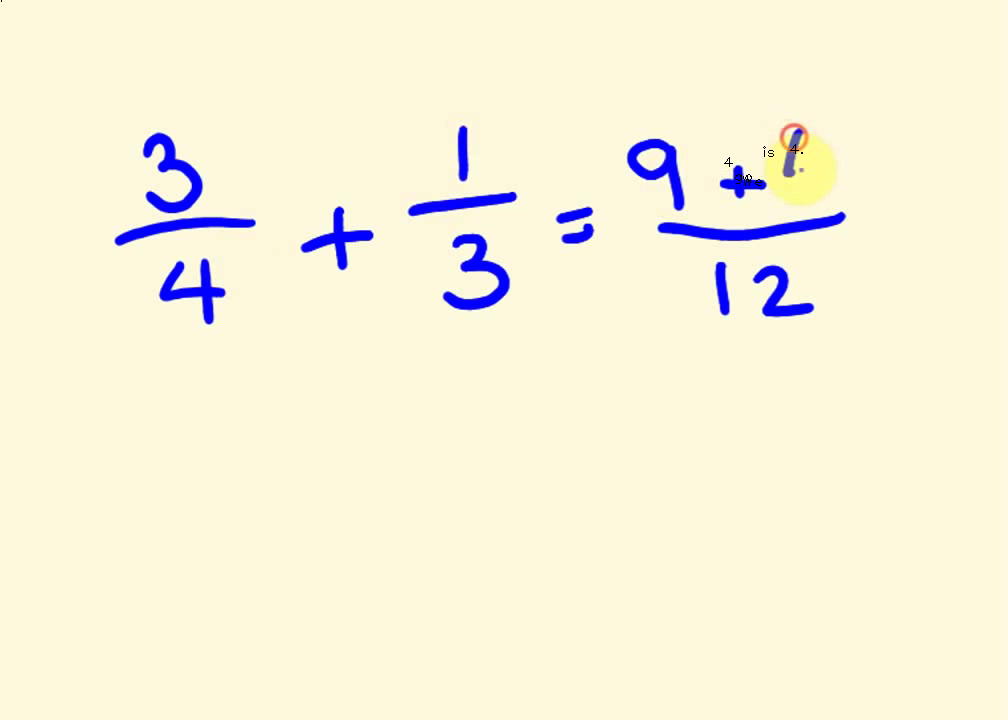 3/4 + 1/3 = 9 + /12
4 is 4.